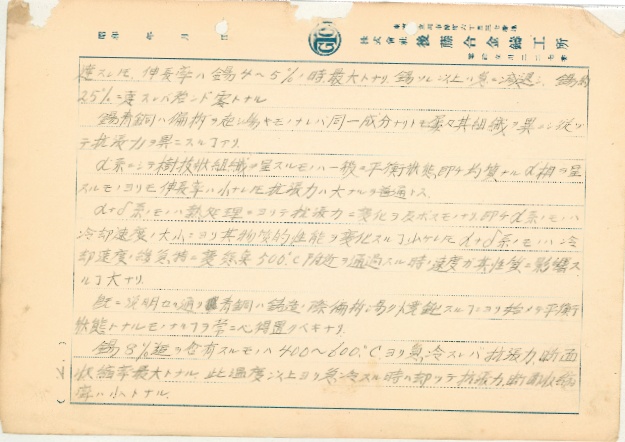 昭和 年 月 日
株式會社 後藤合金鑄工所
達スレ共、伸長率ハ錫4〜5%ノ時最大トナリ錫ソレ以上ハ急ニ減退シ、錫約
25%ニ達スレバ殆ンド零トナル
錫青銅ハ偏析ヲ モノナレバ同一成分ナリトモ 其組織ヲ異ニシ従ツ
テ抗張力ヲ異ニスルナリ
α系ニシテ樹枝状組織ヲ呈スルモノハ一様ニ平衡状態即チ均質ナルα相ヲ呈
スルモノヨリモ伸長率ハ小ナレ共抗張力ハ大ナルヲ普通トス
α+δ系ノモノハ熱処理ニヨリテ抗張力ニ変化ヲ及ボスモノナリ即チα系ノモノハ
冷却速度ノ大小ニヨリ其物質的性能ヲ変化スル丁少ケレ共α+δ系ノモノハ冷
却速度、 500°C附近ヲ通過スル時ノ速度ガ其性質ニ影響ス
ル丁大ナリ
既ニ説明セル通リ青銅ハ鑄造ノ際偏析 ク焼鈍スル丁ニヨリ始メテ平衡
状態トナルモノナル丁ヲ常ニ心得置クベキナリ
錫8%迄ヲ含有スルモノハ400〜600°Cヨリ急冷スレバ抗張力、断面
収縮率最大トナル 此温度以上ヨリ急冷スル時ハ却ツテ抗張力、断面収縮
率ハ小トナル